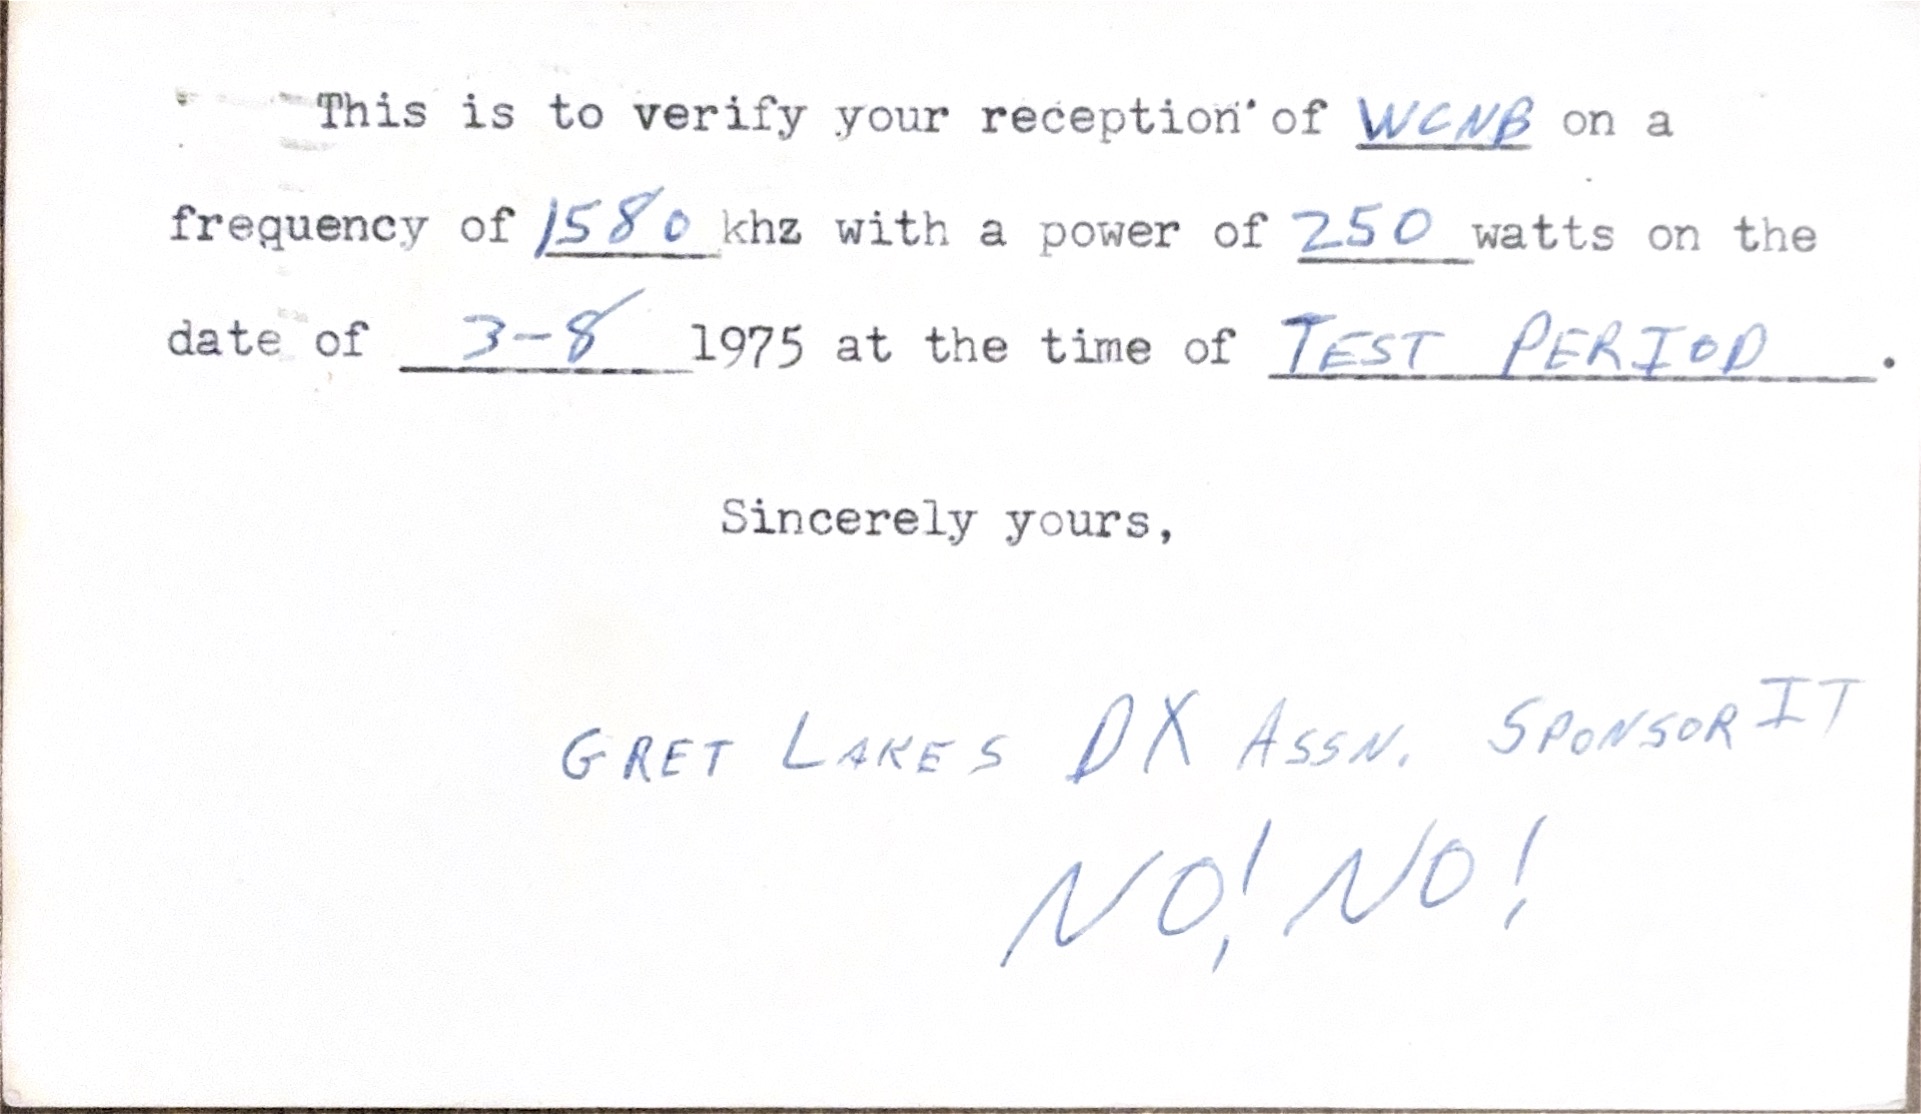 This is to verify your reception of WCNB on a
frequency of 1580 khz with a power of 250 watts on the
date of 3-8 1975 at the time of TEST PERIOD .
Sincerely yours,
GRET LAKES DX ASSN. SPONSOR IT
NO! NO!